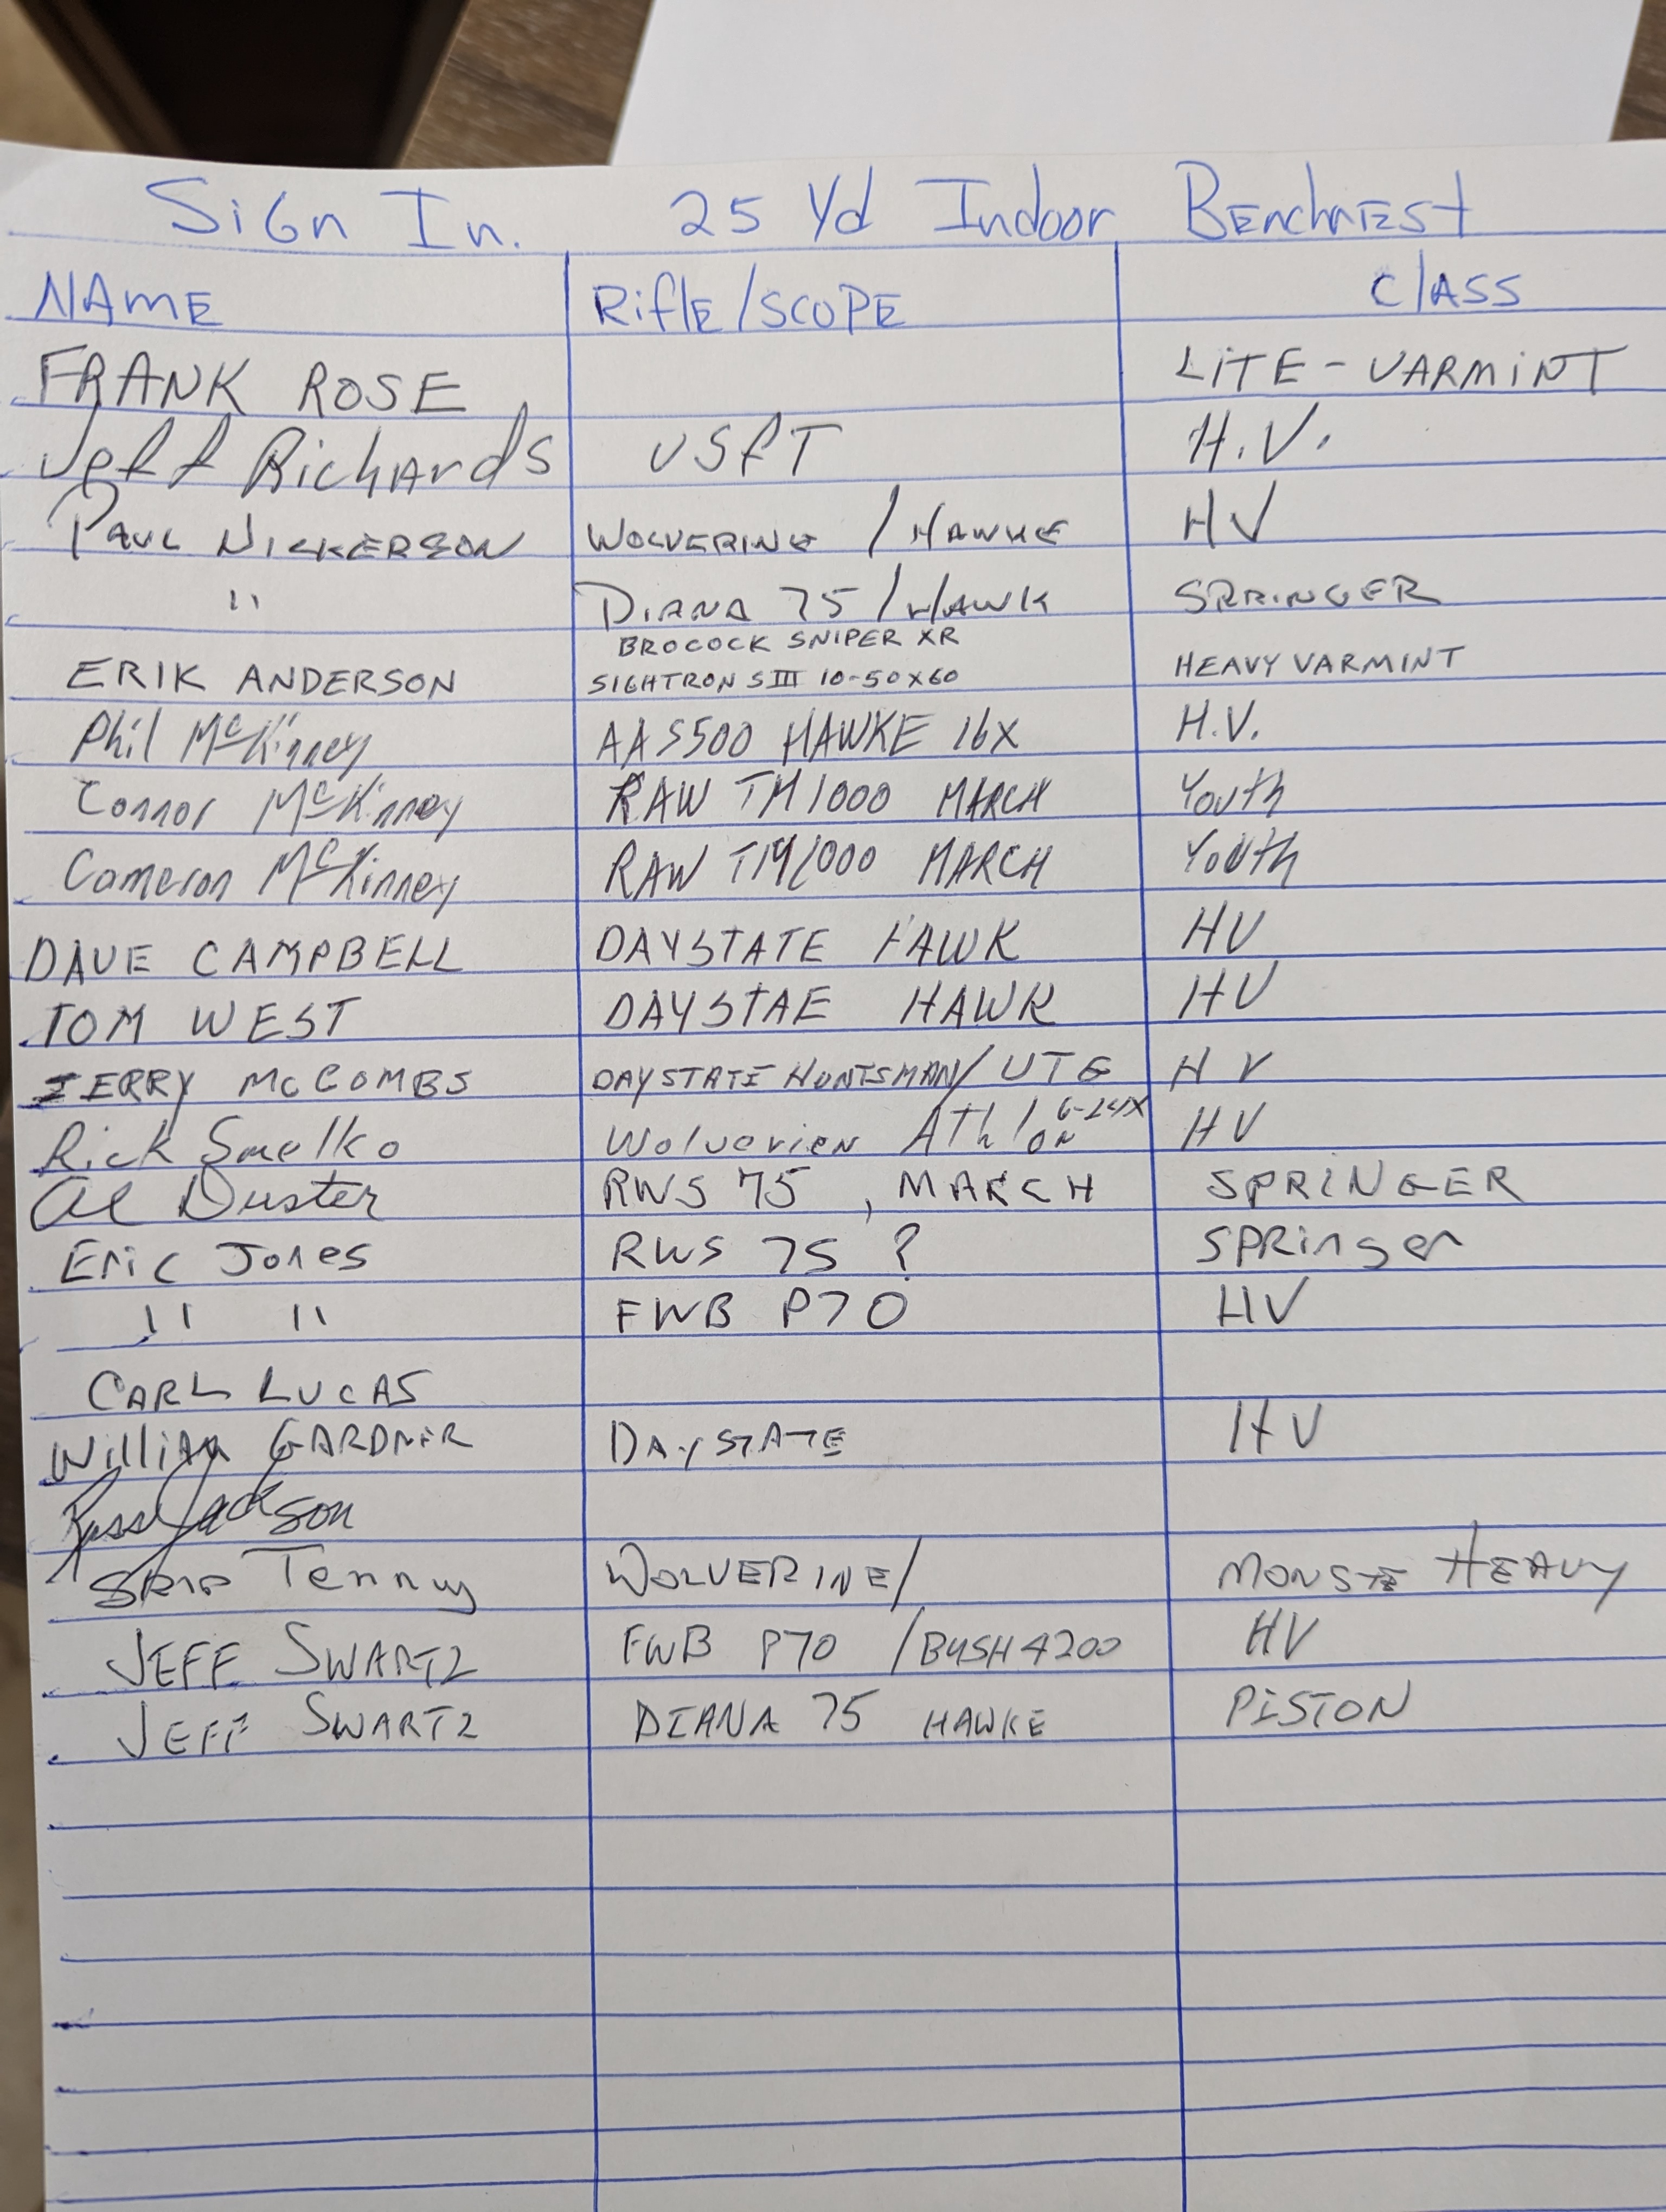 Sign In. 25 Yd Indoor Benchrest
NAME Rifle/SCOPE Class
FRANK ROSE LITE-VARMINT
Jeff Richards USFT H.V.
PAUL NICKERSON WOLVERINE / HAWKE HV
" DIANA 75 / HAWK SPRINGER
BROCOCK SNIPER XR
ERIK ANDERSON SIGHTRON SIII 10-50X60 HEAVY VARMINT
Phil McKinney AAS500 HAWKE 16X H.V.
Connor McKinney RAW TM1000 MARCH Youth
Cameron McKinney RAW TM1000 MARCH Youth
DAVE CAMPBELL DAYSTATE HAWK HV
TOM WEST DAYSTAE HAWK HV
JERRY McCOMBS DAYSTATE HUNTSMAN/UTG HV
Rick Smelko Wolverien Athlon 6-24X HV
Al Duster RWS 75, MARCH SPRINGER
Eric Jones RWS 75 ? SPRinger
" " FWB P70 HV
CARL LUCAS
William GARDNER DAYSTATE HV
Russ Jackson
SKIP Tenny WOLVERINE/ HEAVY
JEFF SWARTZ FWB P70 /BUSH 4200 HV
JEFF SWARTZ DIANA 75 HAWKE PISTON